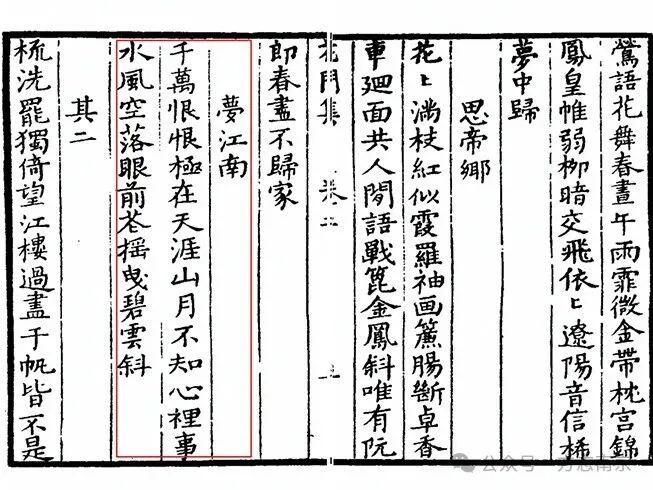 鶯語花舞春晝午雨霏微金帶枕宫錦
鳳皇帷弱柳暗交飛依〻遼陽音信稀
夢中歸
思帝鄉
花〻滿枝紅似霞羅袖画簾腸斷卓香
車廻面共人閒語戰篦金鳳斜唯有阮
集
郎春盡不歸家
夢江南
千萬恨恨極在天涯山月不知心裡事
水風空落眼前花摇曳碧雲斜
其二
梳洗罷獨倚望江樓過盡千帆皆不是
公众号·方志南京